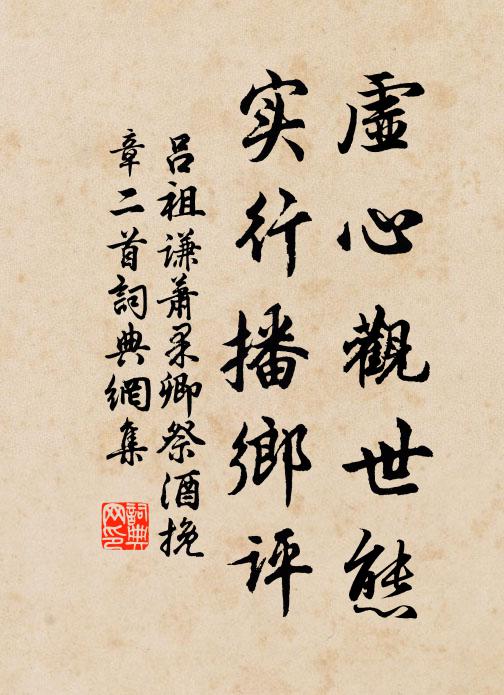 虛心觀世態
实行播鄉评
吕祖谦萧果卿祭酒挽
章二首詞典網集
詞典网印